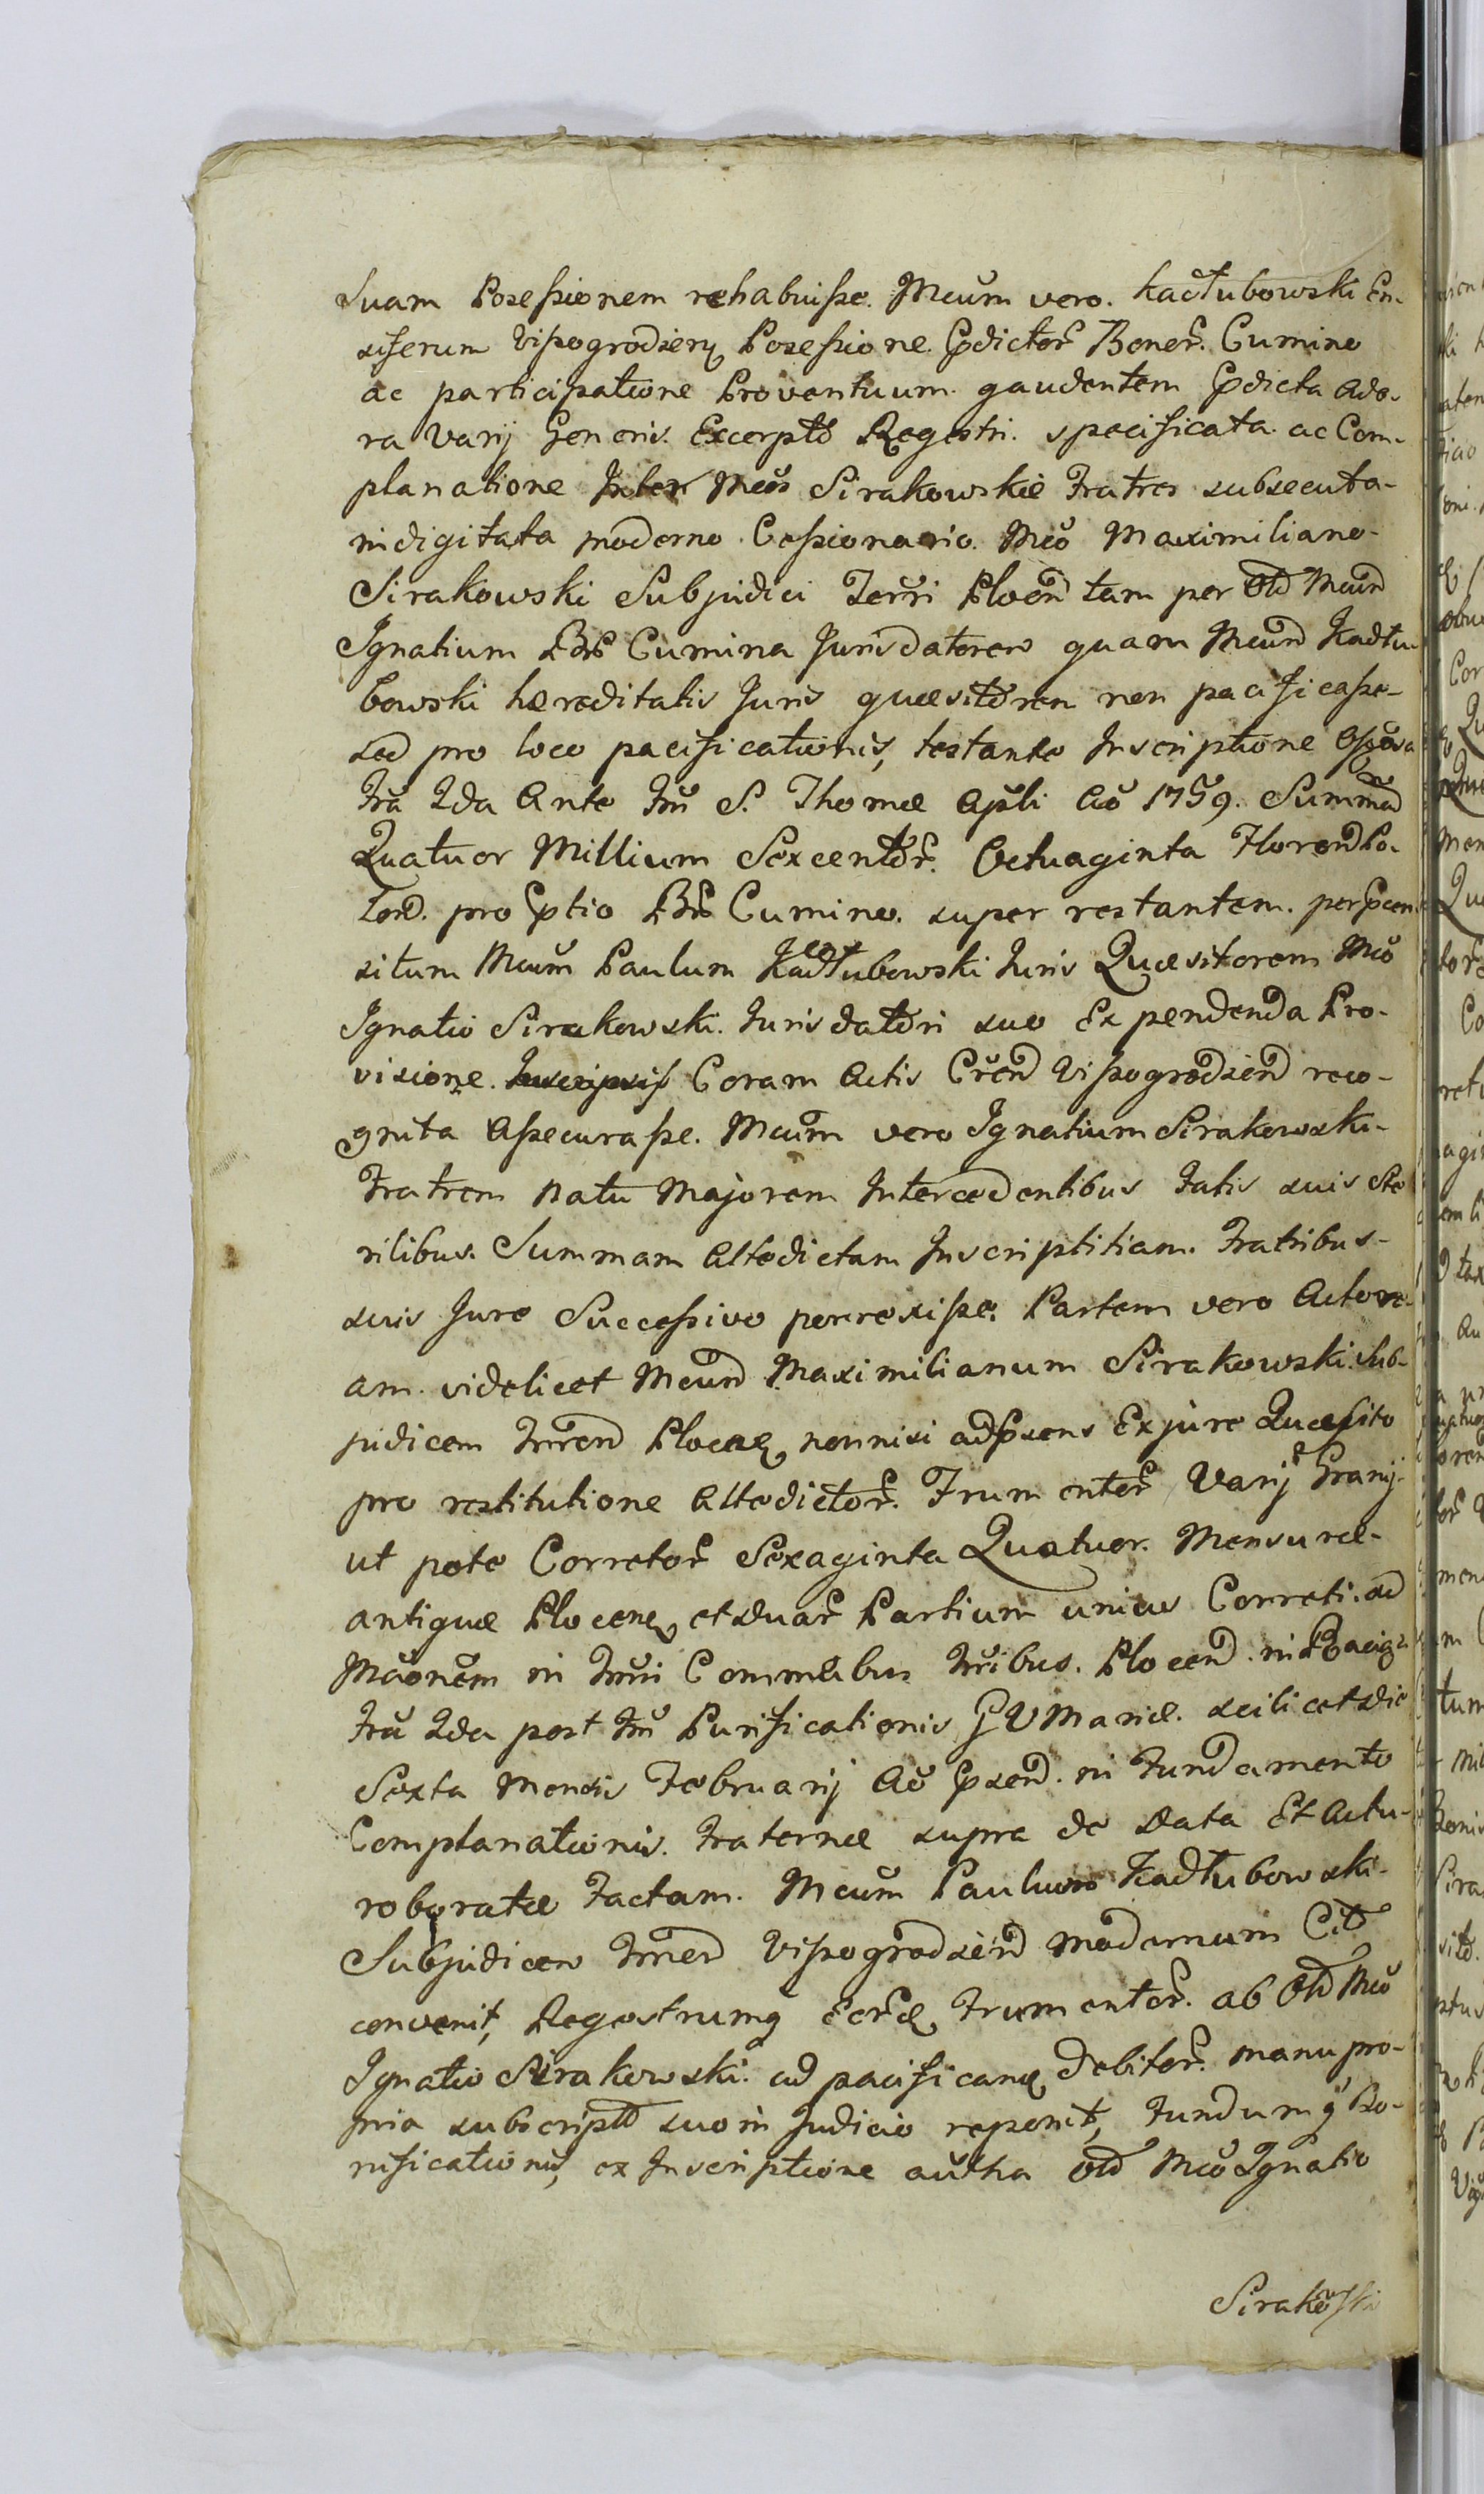 suam Posessionem rehabuisse. Mcum vero. Kadłubowski En-
siferum Vissogrodien Posessione Pdictor Bonor. Cumino
ac participatione Proventuum gaudentem Pdicta Ado-
ra Varij Generis. Excerpto Regestri. specificata ac Com-
planatione Inter Mcos Sirakowskie Fratres subsecuta-
indigitata moderno Cessionario. Mco Maximiliano-
Sirakowski Subjudici Terri Plocen tam per Old Mcum
Ignatium Bns Cumina Juris datorem quam Mcum Kadłu
bowski hæreditatis Juris quæsitorem non pacificasse-
sed pro loco pacificationis, testante Inscriptione
Fria 2da Ante Fm S. Thomæ Apli Ao 1759. Summam
Quatuor Millium Sexcentor. Octuaginta Floren Po-
lon. pro Ptio Bns Cumino. super restantem. per Pcen
situm Mcum Paulum Kadłubowski Juris Quæsitorem Mco
Ignatio Sirakowski. Juris datori suo Expendenda Pro-
visione. Coram Actis Cren Vissogrodien reco-
gnita Assecurasse. Mcum vero Ignatium Sirakowski-
Fratrem natu Majorem Intercedentibus Fatis suis Ste
rilibus. Summam Altedictam Inscriptitiam. Fratribus-
suis Jure Successivo porrexisse. Partem vero Actore-
am. videlicet Mcum Maximilianum Sirakowski Sub-
judicem Trren Plocen nonnisi adpsens Ex jure Quæsito
pro restitutione Altedictor. Frumentor Varij Grani-
ut pote Corretor Sexaginta Quatuor. Mensuræ-
antiquæ Plocen et duar Partium unius Correti. ad
Mcionem in Trrii Commibus Trribus. Plocen. in
Fria 2da post Fm Purificationis B V Mariæ. scilicet die
Sexta Mensis Februarij Ao Psen. in Fundamento
Complanationis. Fraternæ supra de Data Et Actu-
roboratæ Factam. Mcum Paulum Kadłubowski-
Subjudicem Trren Vissogrodien modernum Cit
convenit, Regestrumq Ecræ Frumentor. ab Old Mco
Ignatio Sirakowski. ad pacifican Debitor. manu pro-
pria subscripto suo in Judicio reponit, Fundumq Bo-
nificationis, ex Inscriptione autha Old Mco Ignatio
Sirakowski